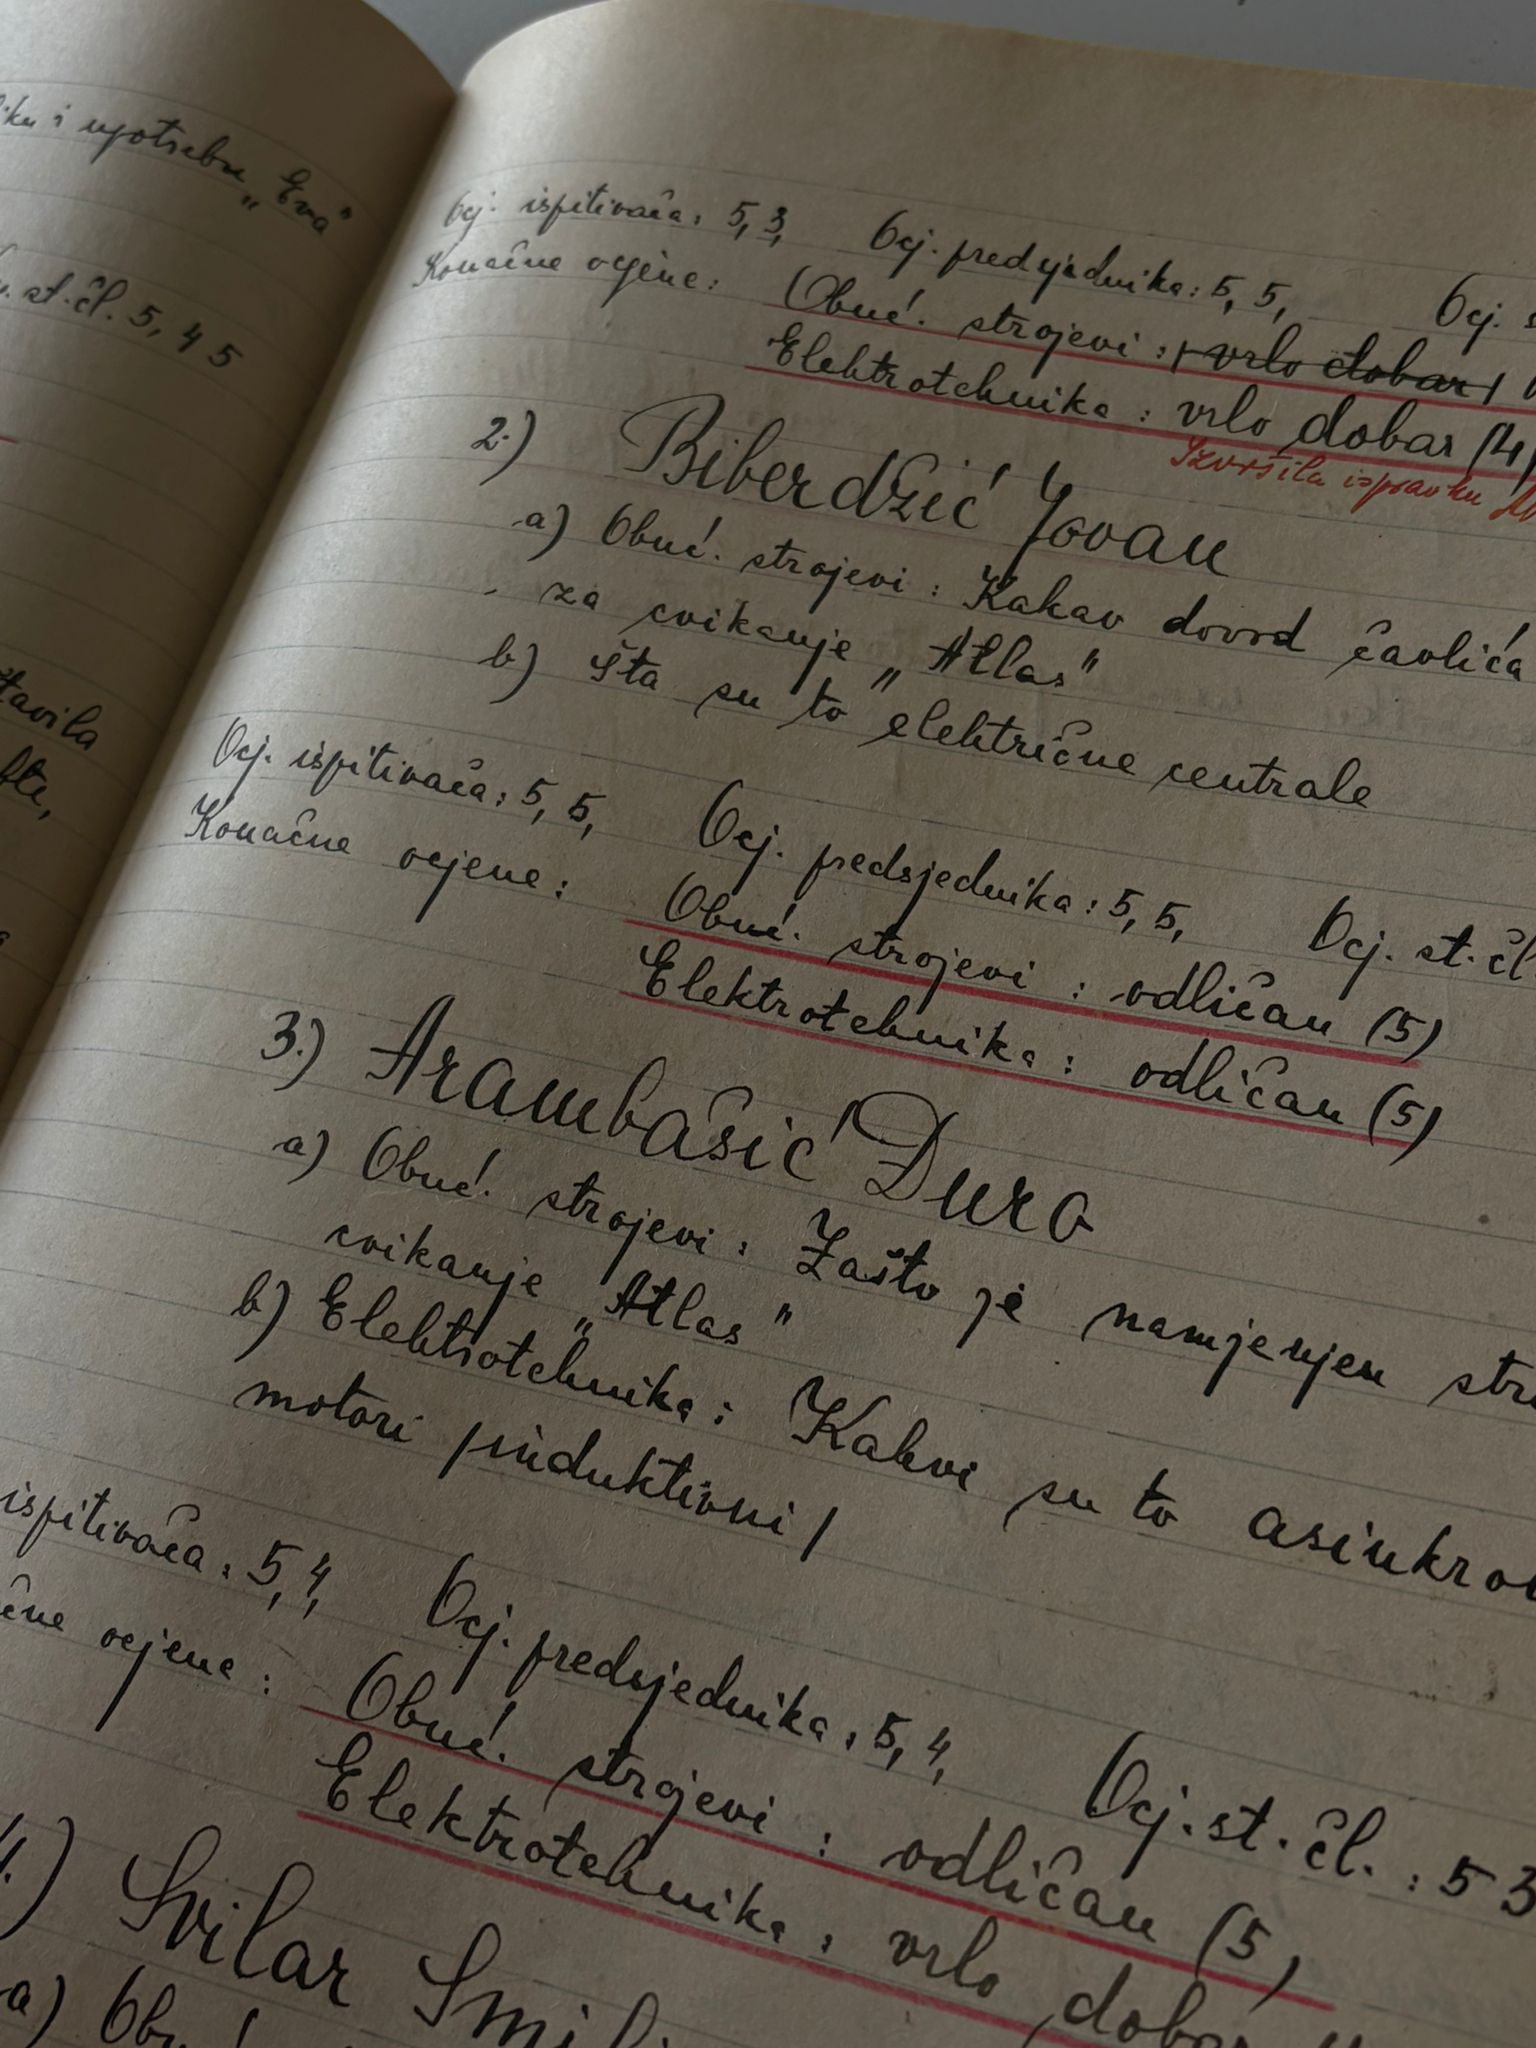 i upotrebu „Eva"
st. čl. 5, 4 5
tavila
Ocj. ispitivača: 5, 3, Ocj. predsjednika: 5, 5, Ocj.
Konačne ocjene: Obuć. strojevi: vrlo dobar
Elektrotehnika: vrlo dobar (4)
Izvršila ispravku
2.) Biberdžić Jovan
a) Obuć. strojevi: Kakav dovod čavlića
za cvikanje „Atlas"
b) Šta su to električne centrale
Ocj. ispitivača: 5, 5, Ocj. predsjednika: 5, 5, Ocj. st. čl
Konačne ocjene: Obuć. strojevi: odličan (5)
Elektrotehnika: odličan (5)
3.) Arambašić Đuro
a) Obuć. strojevi: Zašto je namjenjen
cvikanje „Atlas"
b) Elektrotehnika: Kakvi su to
motori /induktivni/
ispitivača: 5, 4, Ocj. predsjednika: 5, 4, Ocj. st. čl.: 5 3
ocjene: Obuć. strojevi: odličan (5)
Elektrotehnika: vrlo dobar
4.) Svilar
a)